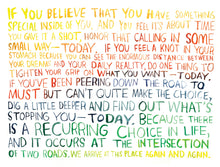 IF YOU BELIEVE THAT YOU HAVE SOMETHING
SPECIAL INSIDE OF YOU, AND YOU FEEL IT'S ABOUT TIME
YOU GAVE IT A SHOT, HONOR THAT CALLING IN SOME
SMALL WAY—TODAY. IF YOU FEEL A KNOT IN YOUR
STOMACH BECAUSE YOU CAN SEE THE ENORMOUS DISTANCE BETWEEN
YOUR DREAM AND YOUR DAILY REALITY, DO ONE THING TO
TIGHTEN YOUR GRIP ON WHAT YOU WANT—TODAY.
IF YOU'VE BEEN PEERING DOWN THE ROAD TO
MUST BUT CAN'T QUITE MAKE THE CHOICE,
DIG A LITTLE DEEPER AND FIND OUT WHAT'S
STOPPING YOU—TODAY. BECAUSE THERE
IS A RECURRING CHOICE IN LIFE,
AND IT OCCURS AT THE INTERSECTION
OF TWO ROADS. WE ARRIVE AT THIS PLACE AGAIN AND AGAIN.